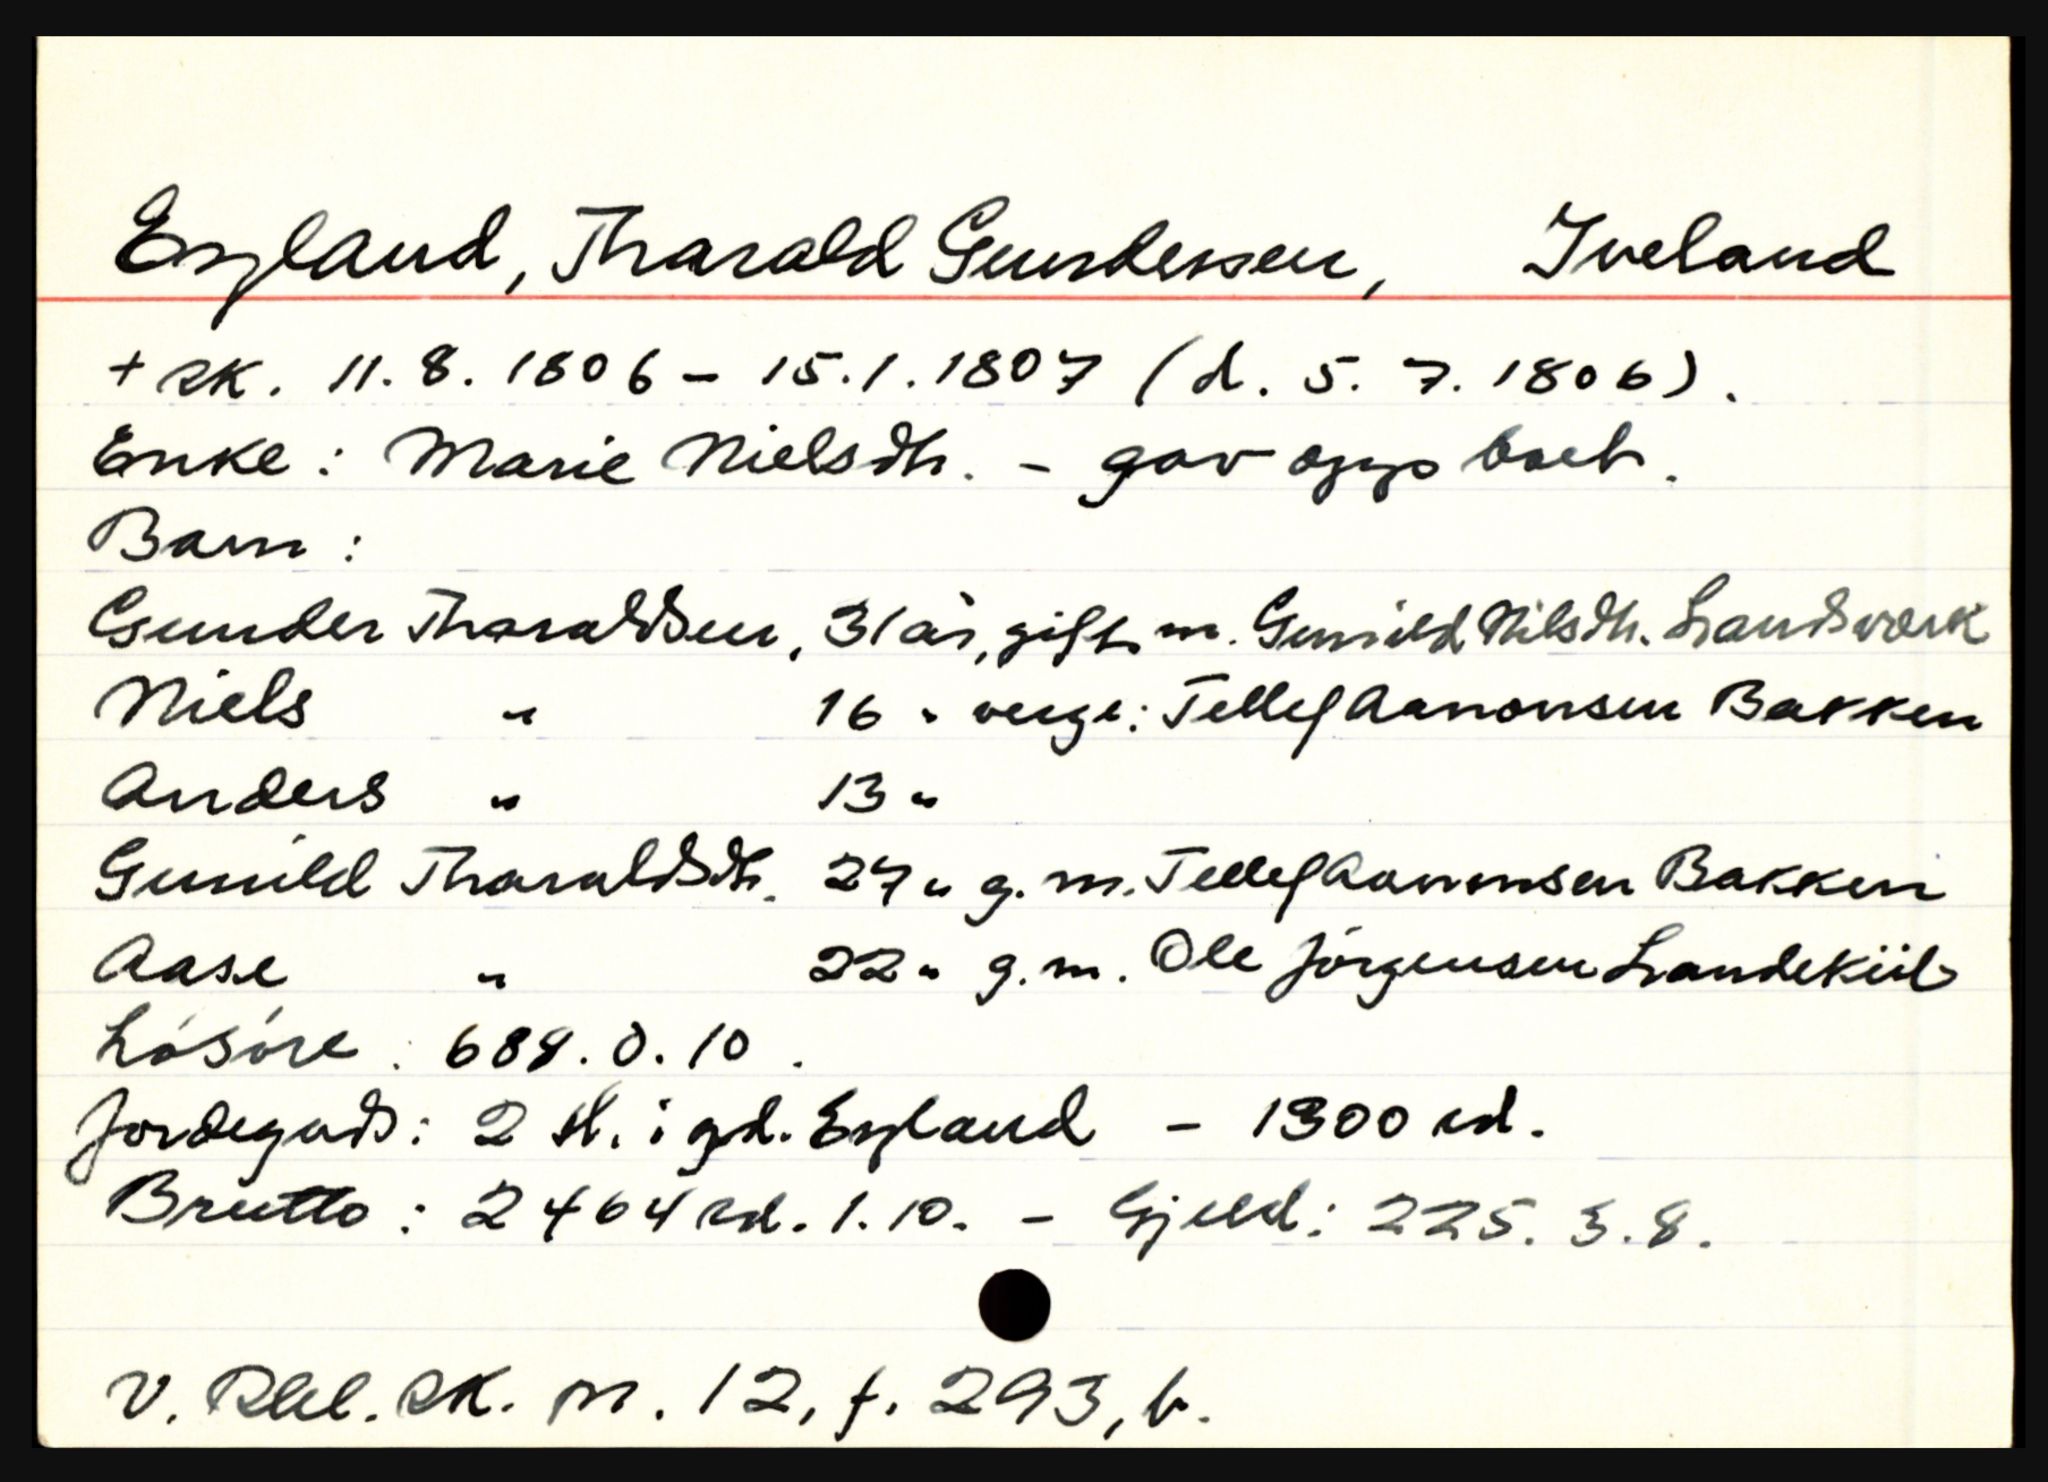 Eryland, Tharald Gundersen, Iveland
+ sk. 11.8.1806 - 15.1.1807 (d. 5.7.1806).
Enke: Marie Nielsdtr. - gav opp boet.
Barn:
Gunder Tharaldsen, 31 år, gift m. Gunild Nilsdtr. Landsverk
Niels " 16 " verge: Tellef Aanonsen Bakken
Anders " 13 "
Gunild Tharaldsdtr. 27 " g. m. Tellef Aanonsen Bakken
Aase " 22 " g. m. Ole Jörgensen Landekiil
Lösöre: 688.0.10.
Jordegods: 2 st. i gd. Eryland - 1300 rd.
Brutto: 2464 rd. 1.10. - Gjeld: 225.3.8.
V. Rbl. sk. pr. 12, f. 293, b.